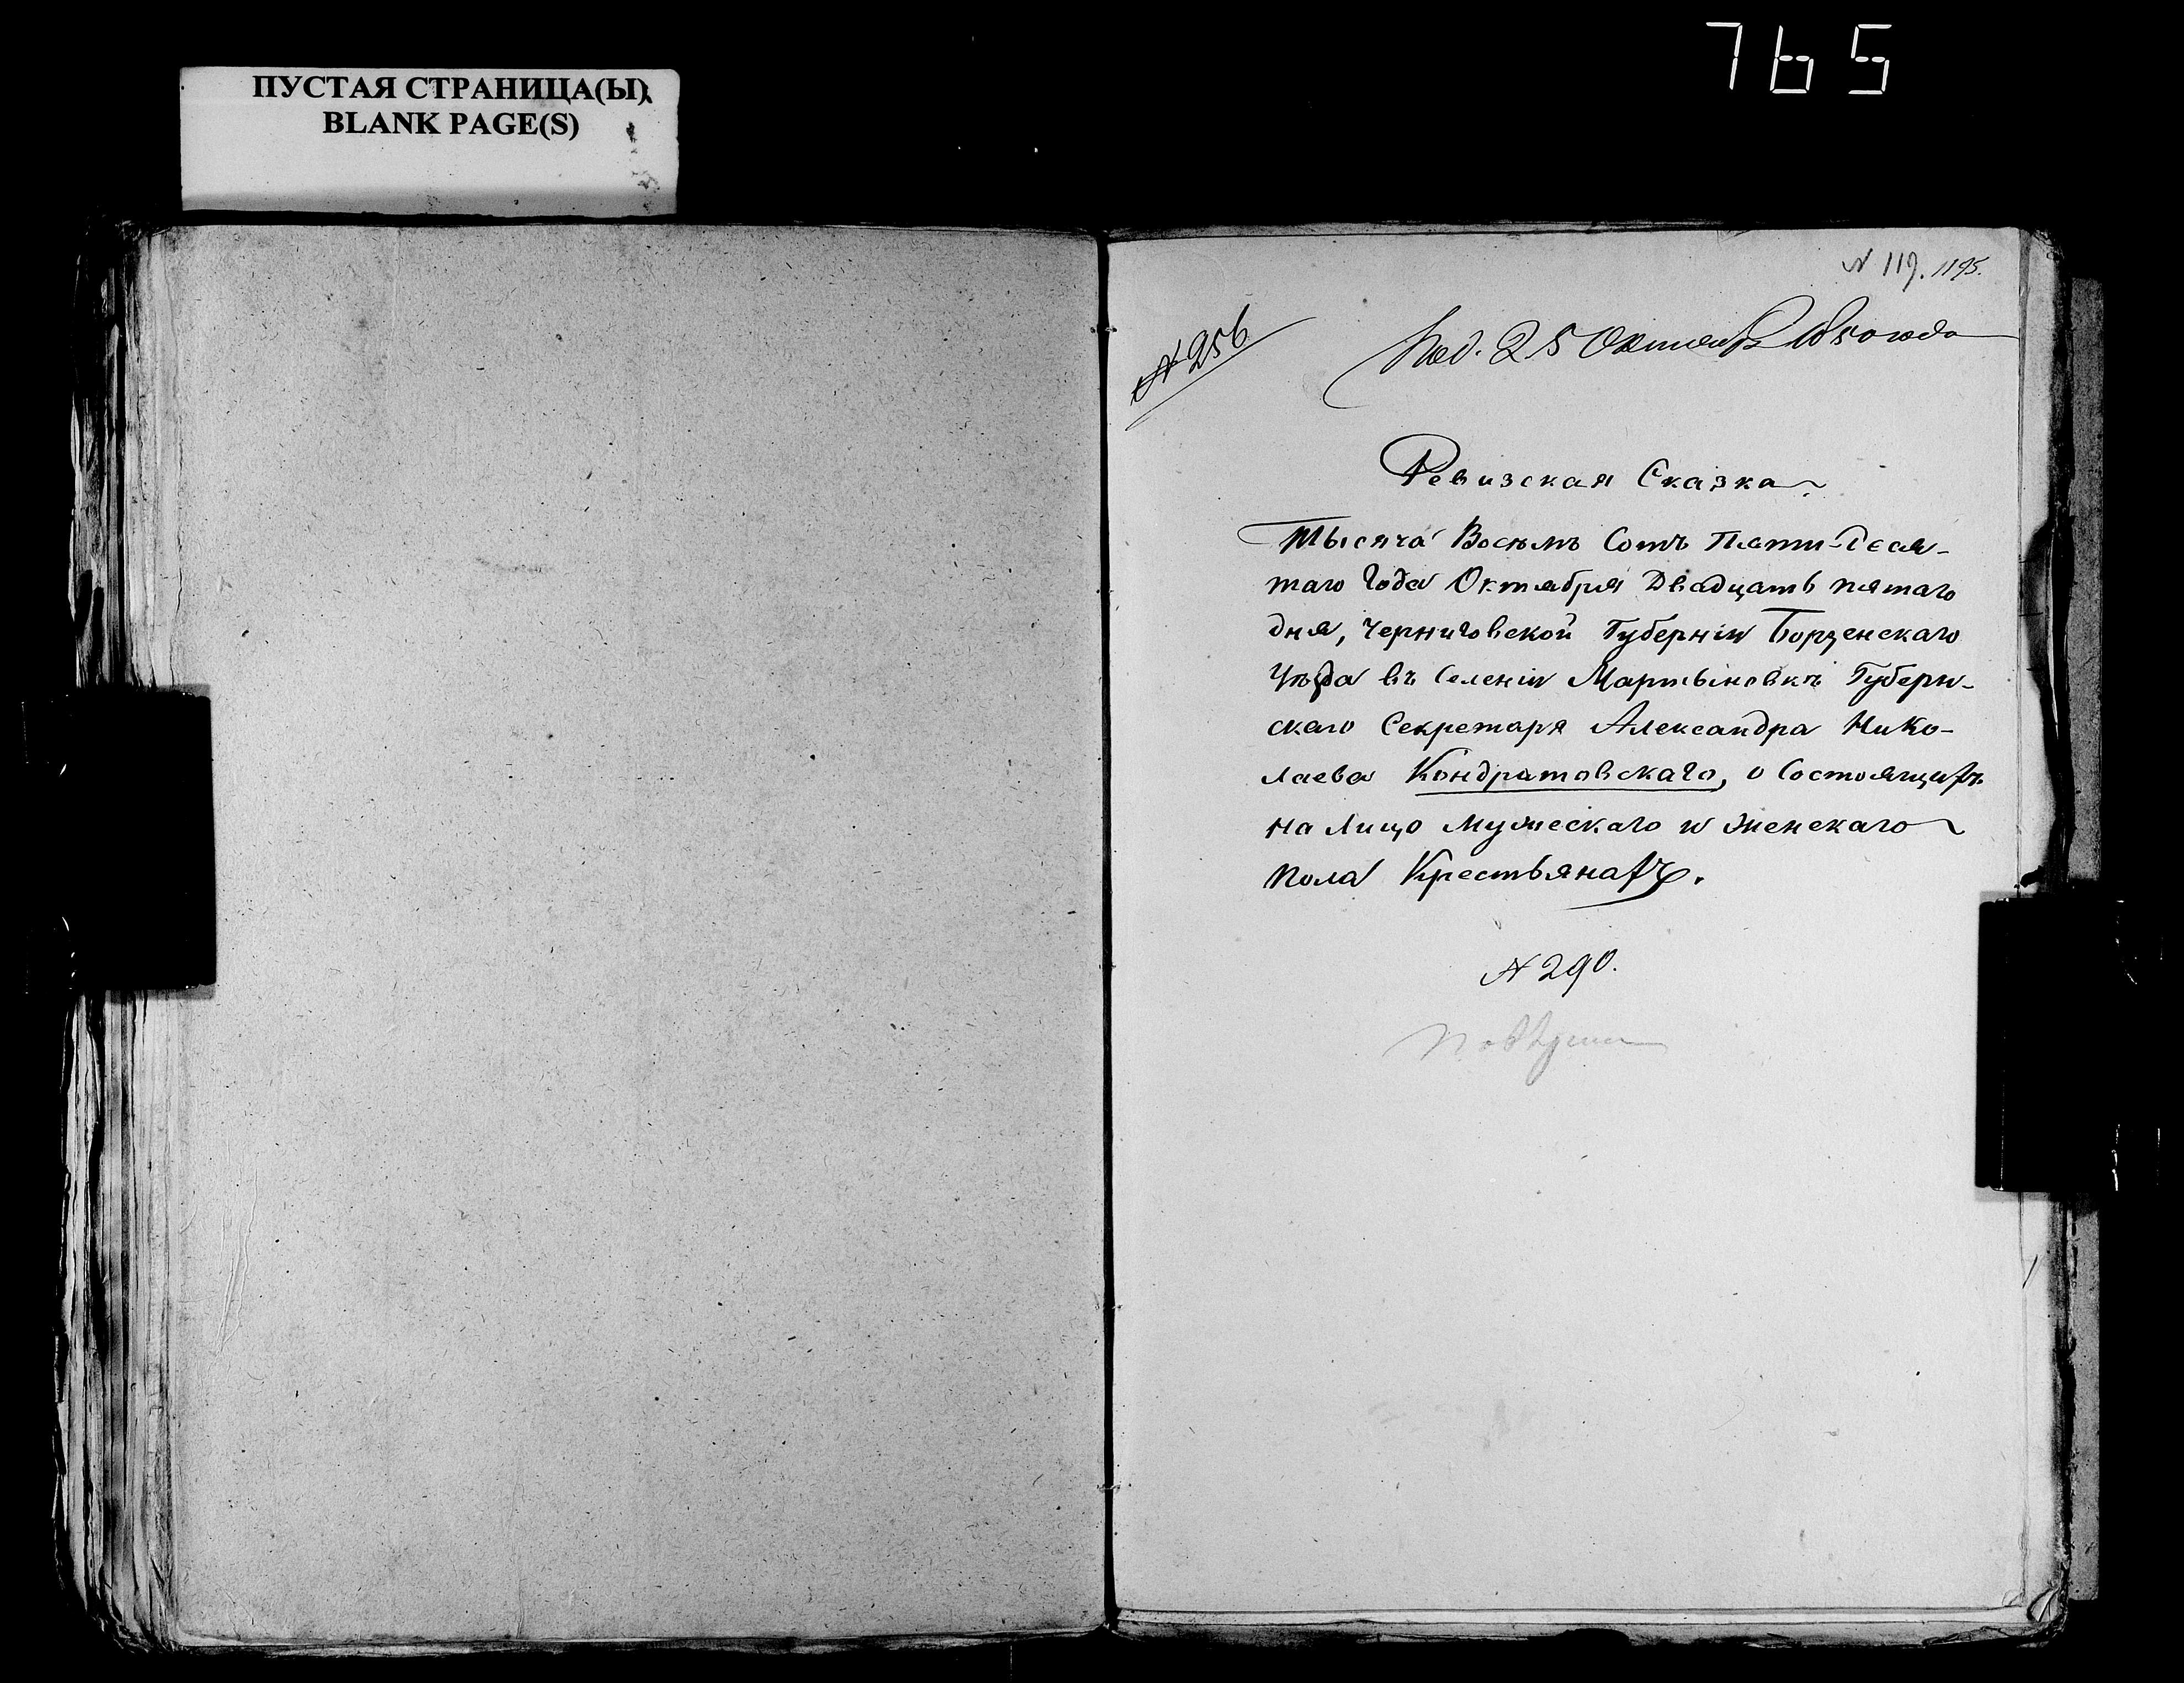 765
ПУСТАЯ СТРАНИЦА(Ы).
BLANK PAGE(S)
№ 119. 1195.
№ 256
Под. 25 Октября 1850 года
Ревизская Сказка
Тысяча Восемь Сотъ Пяти-деся-
таго Года Октября Двадцать пятаго
дня, Черниговской Губерніи Борзенскаго
Уѣзда въ Селеніи Мартыновкѣ Губерн-
скаго Секретаря Александра Нико-
лаева Кондратовскаго, о Состоящихъ
на Лицо Мужескаго и Женскаго
пола Крестьянахъ.
№ 290.